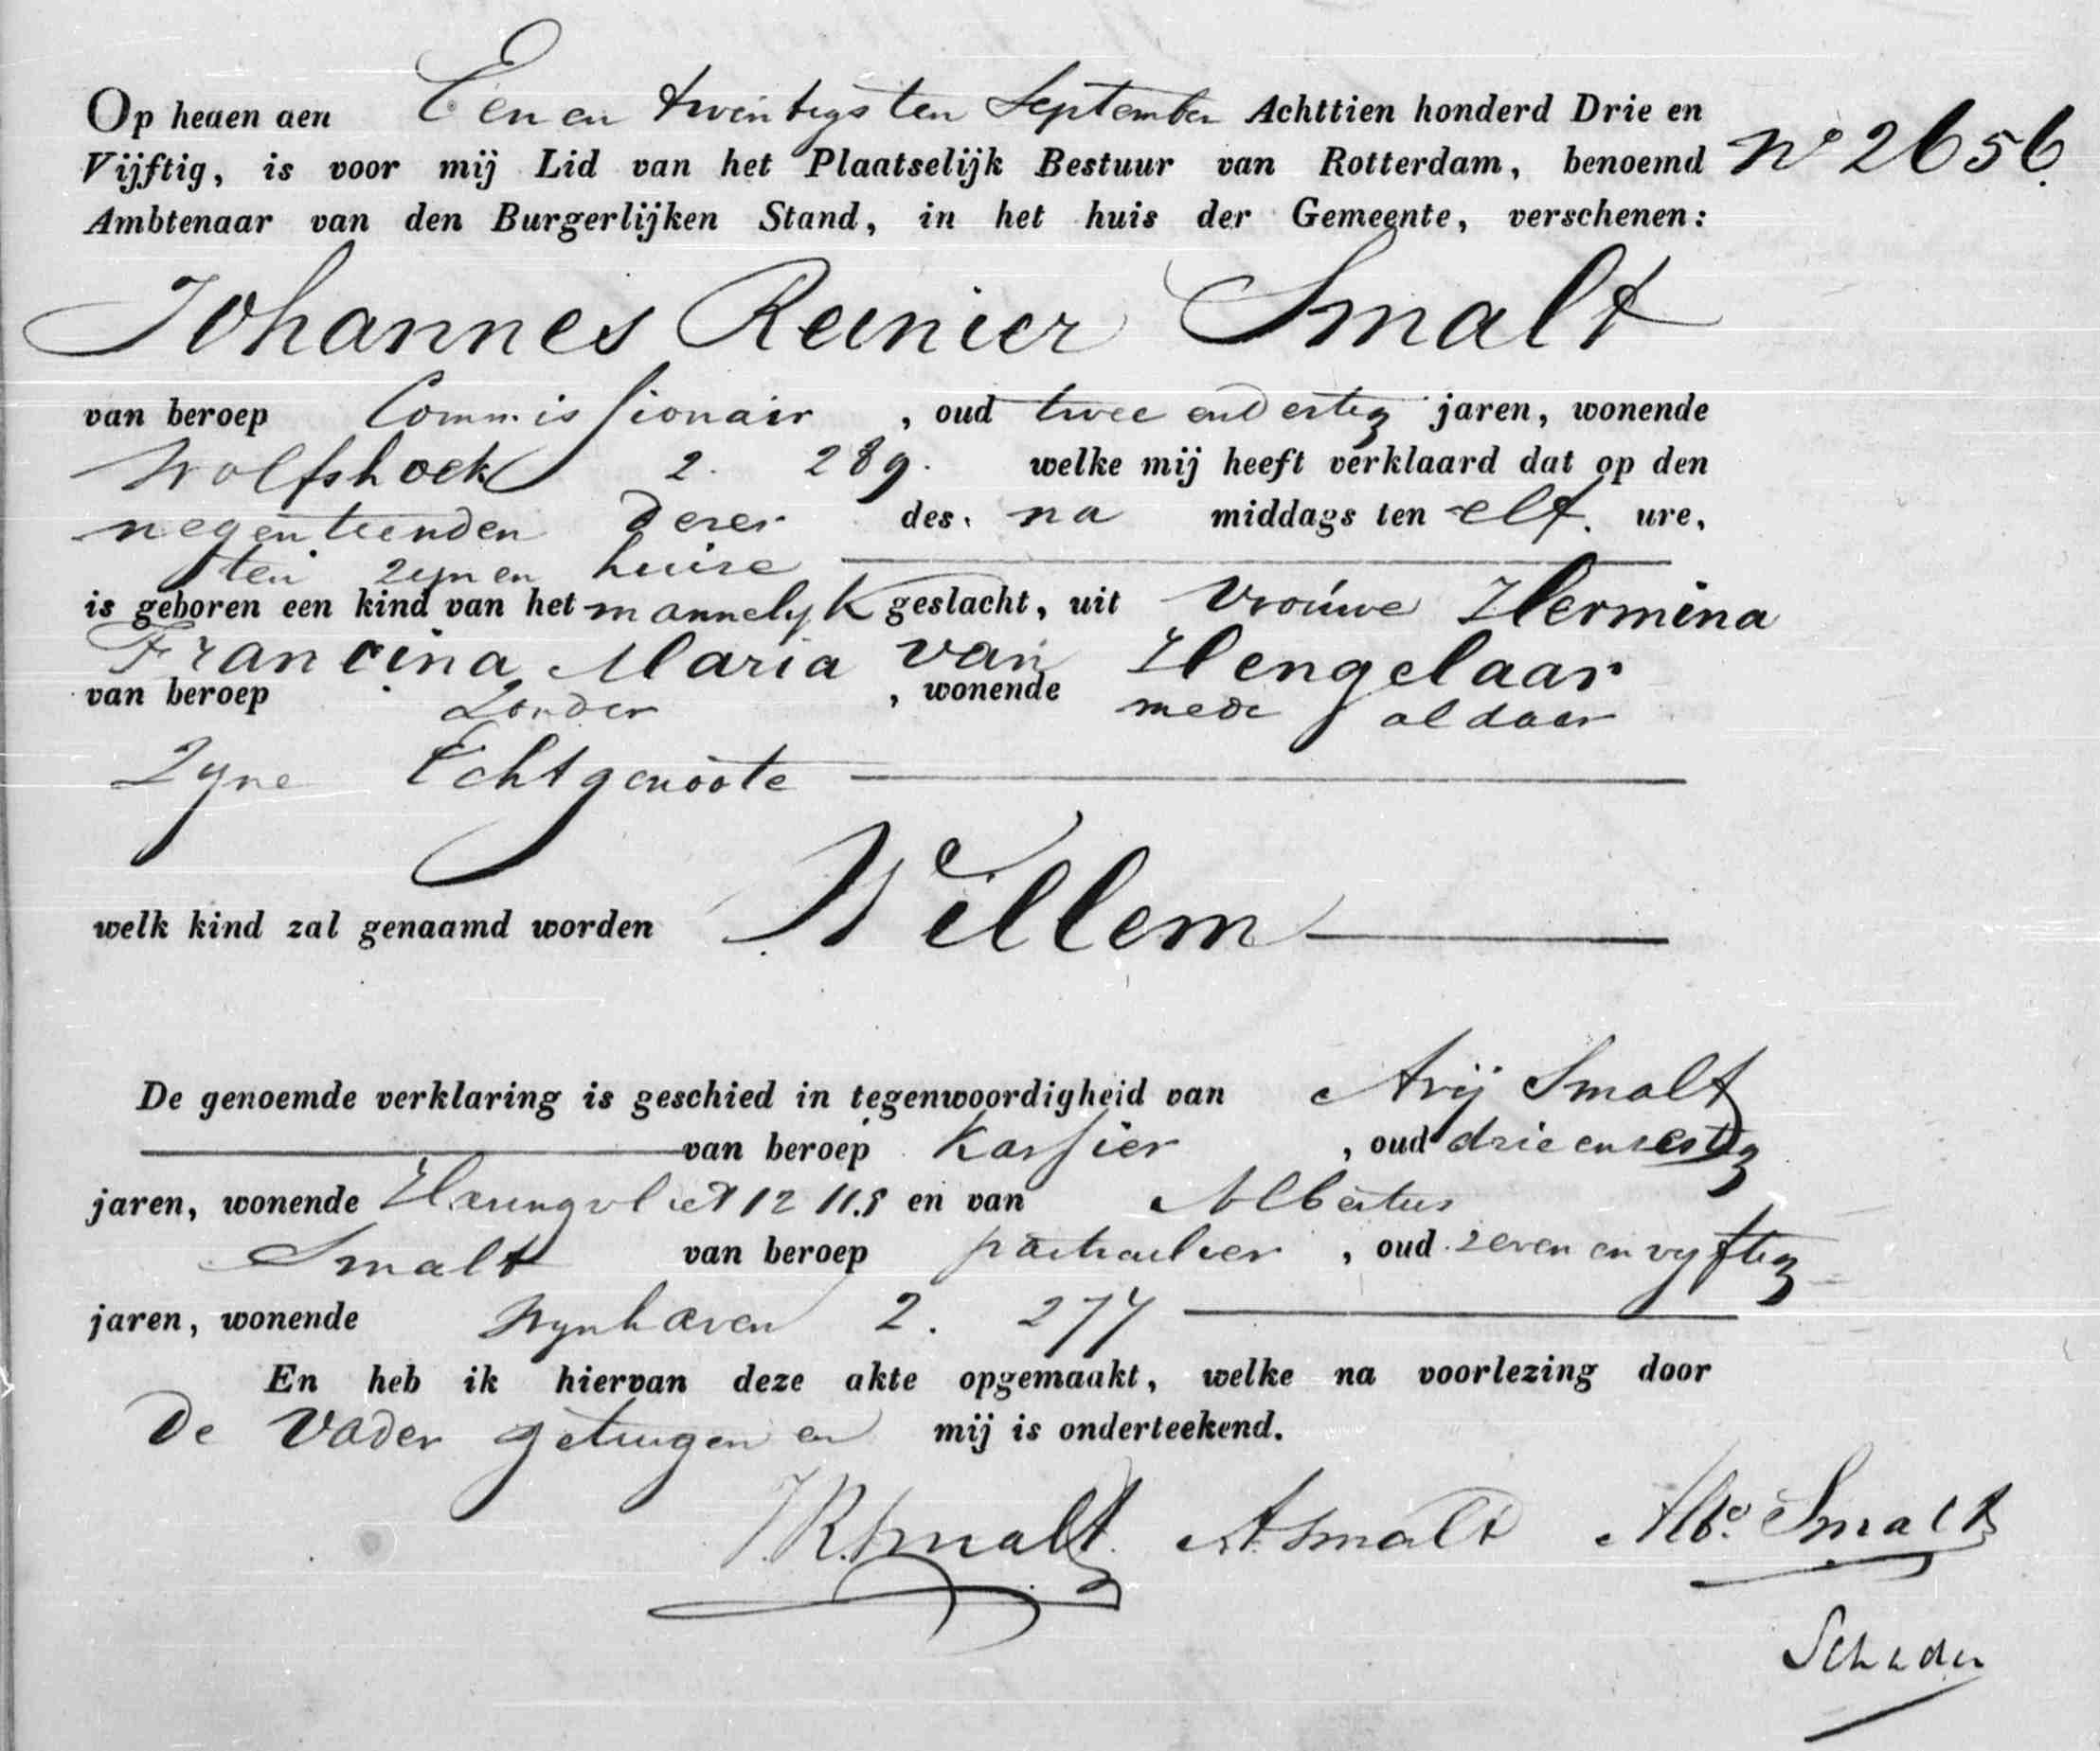 Op heden den Een en twintigsten September Achttien honderd Drie en
Vijftig, is voor mij Lid van het Plaatselijk Bestuur van Rotterdam, benoemd
No 2656.
Ambtenaar van den Burgerlijken Stand, in het huis der Gemeente, verschenen:
Johannes Reinier Smalt
van beroep Commissionair , oud twee en dertig jaren, wonende
Wolfshoek 2. 289. welke mij heeft verklaard dat op den
negentienden dezer des na middags ten elf. ure,
ten zijnen huize
is geboren een kind van het mannelyk geslacht, uit Vrouwe Hermina
Francina Maria van Hengelaar
van beroep Zonder , wonende mede aldaar
Zyne Echtgenoote
welk kind zal genaamd worden Willem
De genoemde verklaring is geschied in tegenwoordigheid van Arij Smalt
van beroep Kassier , oud drie en zestig
jaren, wonende Haringvliet 12 en van Albertus
Smalt van beroep particulier , oud zeven en vyftig
jaren, wonende Wynhaven 2. 277
En heb ik hiervan deze akte opgemaakt, welke na voorlezing door
De Vader getuigen en mij is onderteekend.
J.R. Smalt. A. Smalt Albs. Smalt